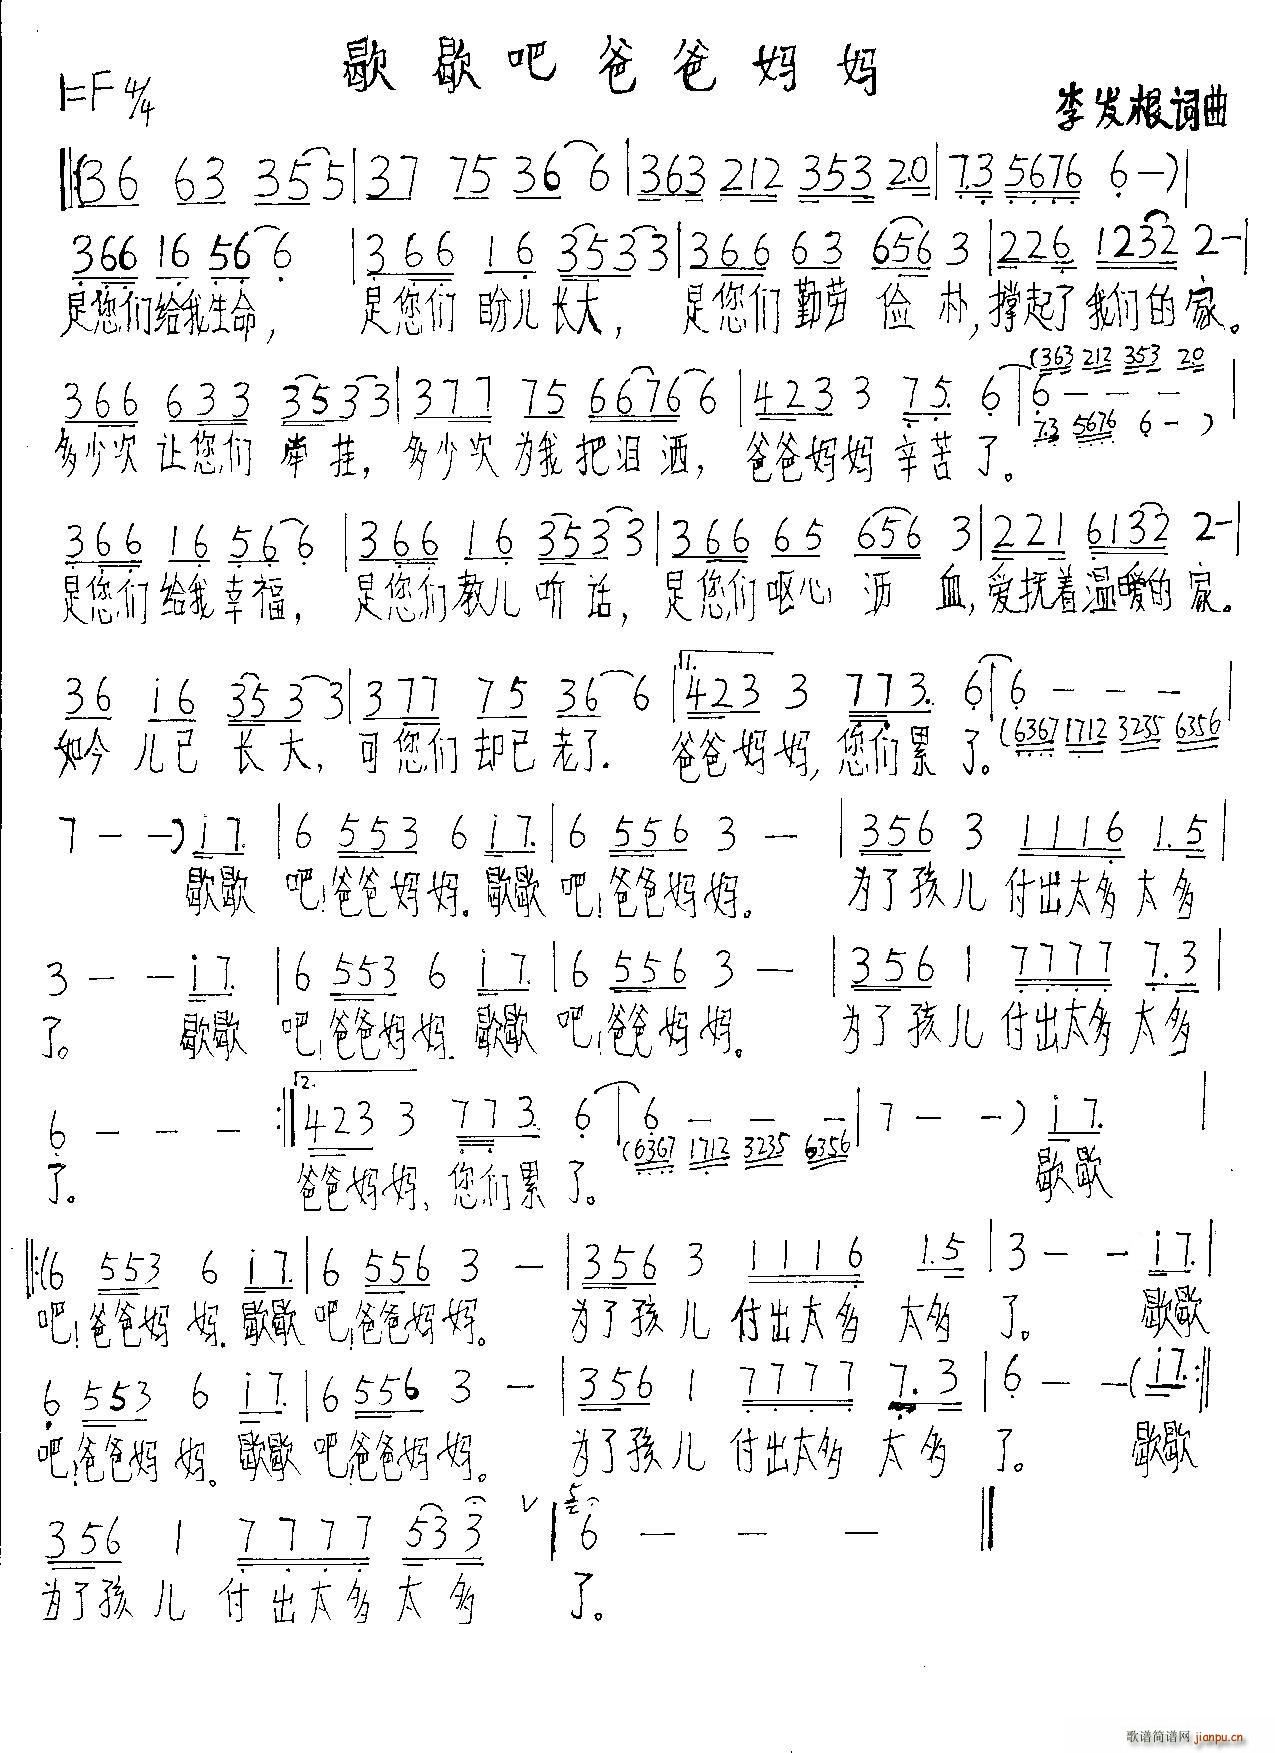 歇歇吧爸爸妈妈
1=F 4/4
李发根词曲
(36 63 355 | 37 75 36 6 | 363 212 353 2.0 | 7.3 5676 6 -) |
366 16 56 6 | 366 16 3533 | 366 63 656 3 | 226 1232 2- |
是您们给我生命, 是您们盼儿长大, 是您们勤劳俭朴, 撑起了我们的家。
(363 212 353 20
366 633 3533 | 377 75 6676 6 | 423 3 75. 6 | 6 - - - |
73 5676 6 - )
多少次让您们牵挂, 多少次为我把泪洒, 爸爸妈妈辛苦了。
366 16 56 6 | 366 16 3533 | 366 65 656 3 | 221 6132 2- |
是您们给我幸福, 是您们教儿听话, 是您们呕心沥血, 爱抚着温暖的家。
36 i6 3533 | 377 75 36 6 | 1. 423 3 773. 6 | 6 - - - |
(6367 1712 3235 6356
如今儿已长大, 可您们却已老了. 爸爸妈妈, 您们累了。
7 - -) i7. | 6 553 6 i7. | 6 556 3 - | 356 3 1116 1.5 |
歇歇吧!爸爸妈妈. 歇歇吧!爸爸妈妈。 为了孩儿付出太多太多
3 - - i7. | 6 553 6 i7. | 6 556 3 - | 356 1 7777 7.3 |
了。 歇歇吧!爸爸妈妈. 歇歇吧!爸爸妈妈。 为了孩儿付出太多太多
6 - - - :|| 2. 423 3 773. 6 | 6 - - - | 7 - - ) i7. |
(6367 1712 3235 6356
了。 爸爸妈妈、您们累了。 歇歇
||:(6 553 6 i7. | 6 556 3 - | 356 3 1116 1.5 | 3 - - i7. |
吧!爸爸妈妈. 歇歇吧!爸爸妈妈。 为了孩儿付出太多太多了。 歇歇
6 553 6 i7. | 6 556 3 - | 356 1 7777 7.3 | 6 - -( i7. :||
吧!爸爸妈妈。歇歇吧!爸爸妈妈。 为了孩儿付出太多太多了。 歇歇
356 1 7777 533 V | 6 - - - ||
为了孩儿付出太多太多了。
歌谱简谱网 jianpu.cn